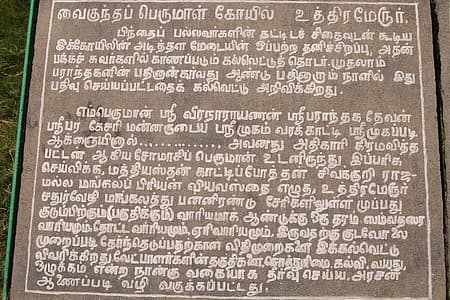 வைகுந்தப் பெருமாள் கோயில் உத்திரமேரூர்.
பிந்தைப் பல்லவர்களின் கட்டிடச் சிதைவுடன் கூடிய
இக்கோயிலின் அடித்தள மேடையின் ஒப்பற்ற தனிச்சிறப்பு, அதன்
பக்கச் சுவர்களில் காணப்படும் கல்வெட்டுத் தொடர். முதலாம்
பராந்தகனின் பதினான்காவது ஆண்டு பதினாறாம் நாளில் இது
பதிவு செய்யப்பட்டதைக் கல்வெட்டு அறிவிக்கிறது.
எம்பெருமான் ஸ்ரீ வீரநாராயணன் ஸ்ரீபராந்தக தேவன்
ஸ்ரீபர கேசரி மன்னருடைய ஸ்ரீமுகம் வரக் காட்டி ஸ்ரீமுகப்படி
ஆக்ஞையினால்................, அவனது அதிகாரி கிராமவித்த
பட்டன் ஆகிய சோமாசிப் பெருமான் உடனிருந்து, இப்பரிசு
செய்விக்க, மத்தியஸ்தன் காட்டிப்போத்தன் சிவக்குறி ராஜ-
மல்ல மங்கலப் பிரியன் வியவஸ்தை எழுத, உத்திரமேரூர்
சதுர்வேதி மங்கலத்து பன்னிரண்டு சேரிகளிலுள்ள முப்பது
குடும்பிற்கும் (பகுதிக்கும்) வாரியமாக ஆண்டுக்கு ஒரு தரம் ஸம்வத்ஸர
வாரியமும், தோட்ட வாரியமும், ஏரிவாரியமும், இருவதற்கு குடவோலை
முறைப்படி தேர்ந்தெடுப்பதற்கான விதிமுறைகளை இக்கல்வெட்டு
விவரிக்கிறது. வேட்பாளர்களின் தகுதிகளை, சொத்துரிமை, கல்வி, வயது,
ஒழுக்கம் என்ற நான்கு வகையாக தீர்வு செய்ய, அரசன்
ஆணைப்படி வழி வகுக்கப்பட்டது.